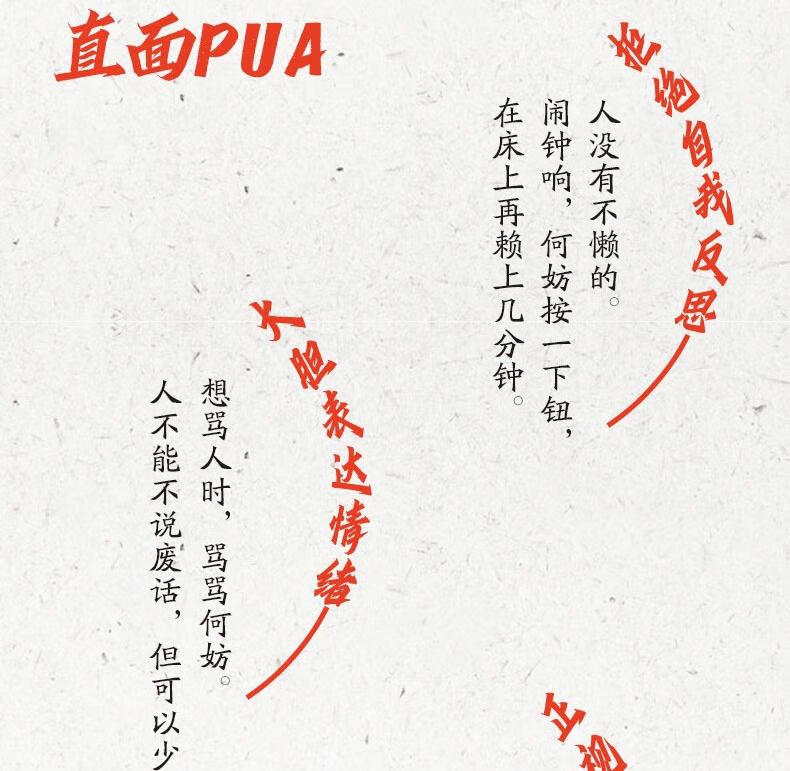 直面PUA
拒绝自我反思
人没有不懒的。
闹钟响，何妨按一下钮，
在床上再赖上几分钟。
大胆表达情绪
想骂人时，骂骂何妨。
人不能不说废话，但可以少
正视